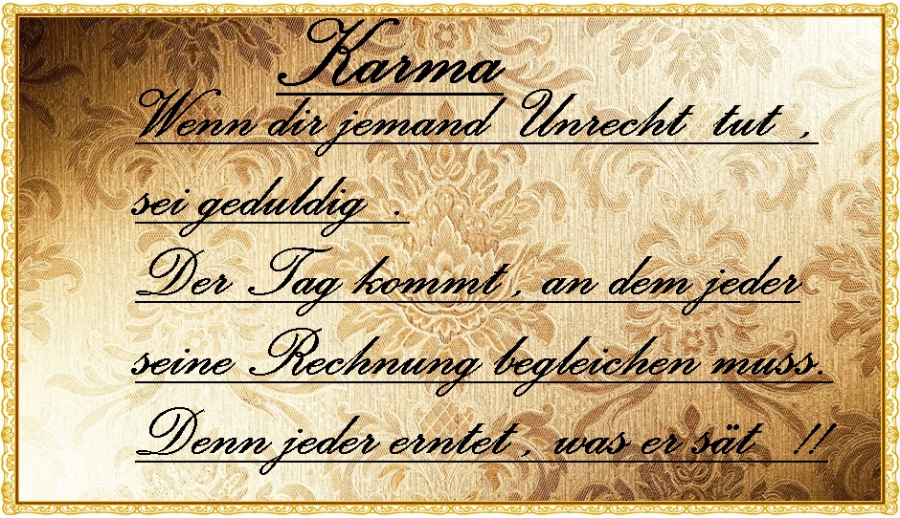 Karma
Wenn dir jemand Unrecht tut ,
sei geduldig .
Der Tag kommt , an dem jeder
seine Rechnung begleichen muss.
Denn jeder erntet , was er sät !!